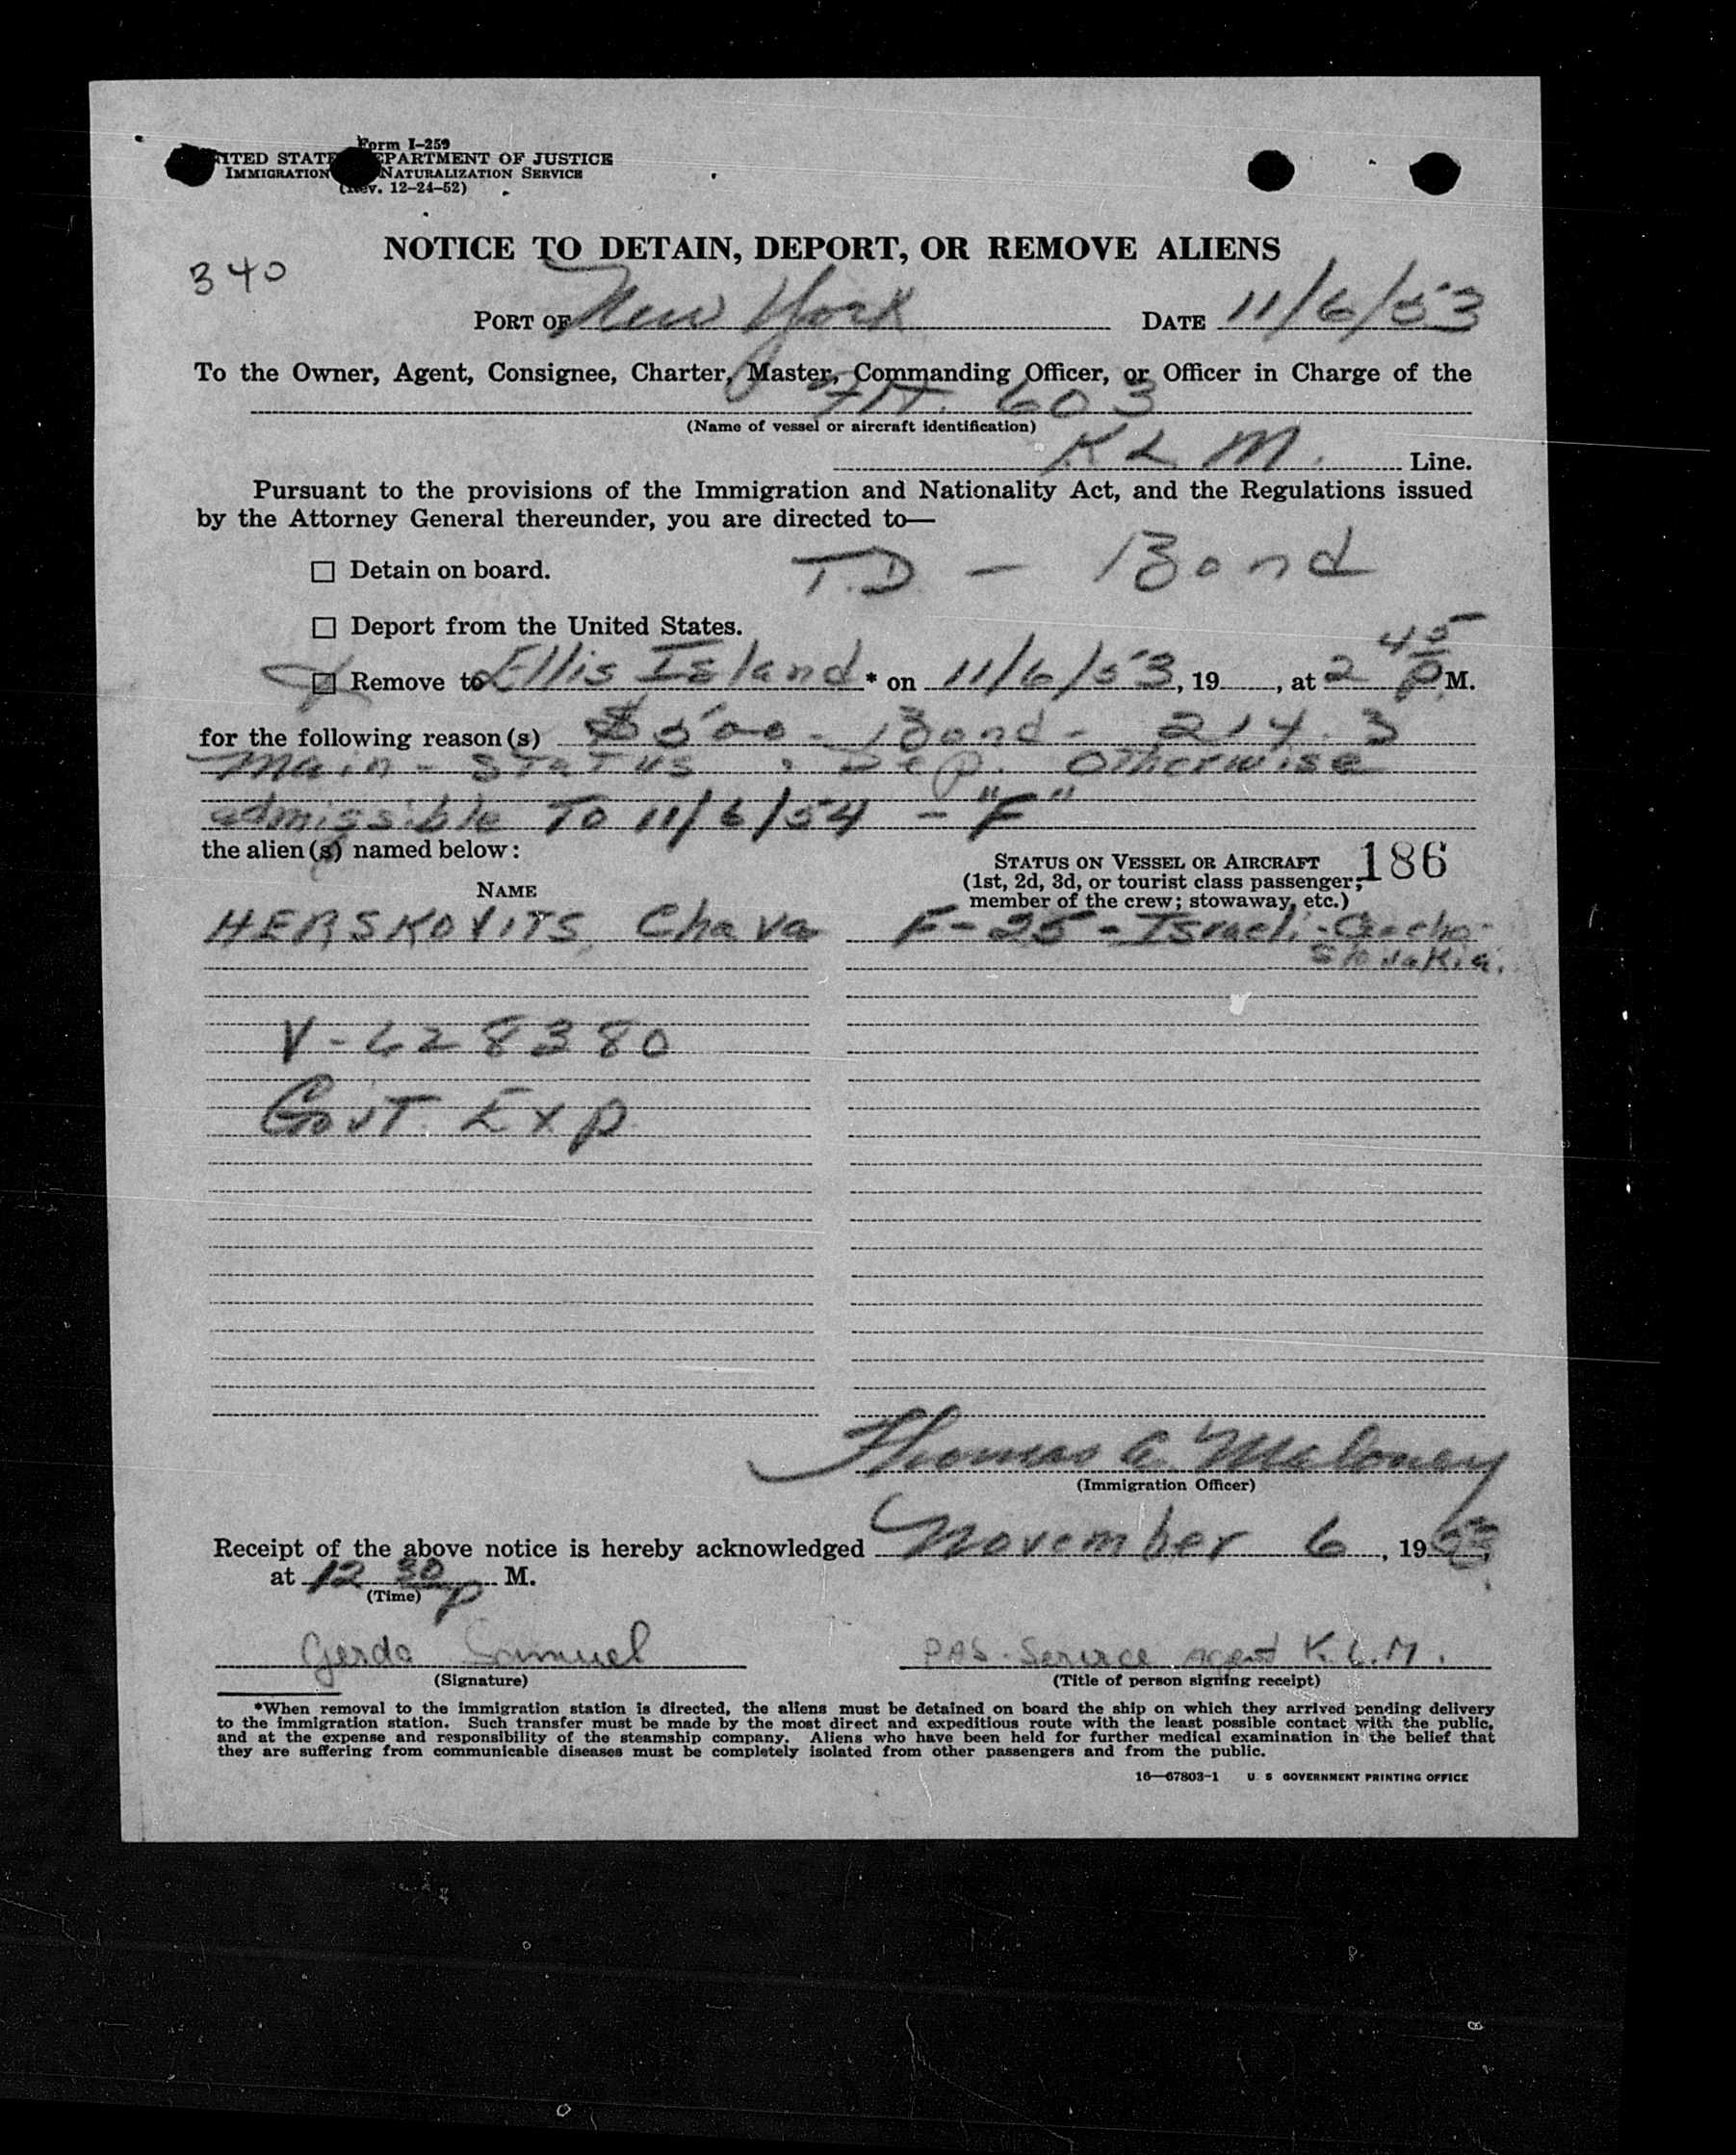 Form I-259
UNITED STATES DEPARTMENT OF JUSTICE
IMMIGRATION NATURALIZATION SERVICE
(Rev. 12-24-52)
NOTICE TO DETAIN, DEPORT, OR REMOVE ALIENS
340
PORT OF New York DATE 11/6/53
To the Owner, Agent, Consignee, Charter, Master, Commanding Officer, or Officer in Charge of the
Flt. 603
(Name of vessel or aircraft identification)
K L M. Line.
Pursuant to the provisions of the Immigration and Nationality Act, and the Regulations issued
by the Attorney General thereunder, you are directed to—
☐ Detain on board. T.D - Bond
☐ Deport from the United States.
☐ Remove to Ellis Island * on 11/6/53, 19, at 2 45 P M.
for the following reason(s) $500 - Bond - 214.3
Main - Status Dep. Otherwise
admissible To 11/6/54 - "F"
the alien(s) named below:
STATUS ON VESSEL OR AIRCRAFT 186
(1st, 2d, 3d, or tourist class passenger;
member of the crew; stowaway, etc.)
NAME
HERSKOVITS, Chava F-25-Israeli-Czecho-
Slovakia.
V-628380
Gov'T. Exp.
Thomas A. Maloney
(Immigration Officer)
Receipt of the above notice is hereby acknowledged November 6, 1953,
at 12 30 p M.
(Time)
Gerda Samuel PAS. Service Agent K.L.M.
(Signature) (Title of person signing receipt)
*When removal to the immigration station is directed, the aliens must be detained on board the ship on which they arrived pending delivery
to the immigration station. Such transfer must be made by the most direct and expeditious route with the least possible contact with the public,
and at the expense and responsibility of the steamship company. Aliens who have been held for further medical examination in the belief that
they are suffering from communicable diseases must be completely isolated from other passengers and from the public.
16—67803-1 U. S. GOVERNMENT PRINTING OFFICE